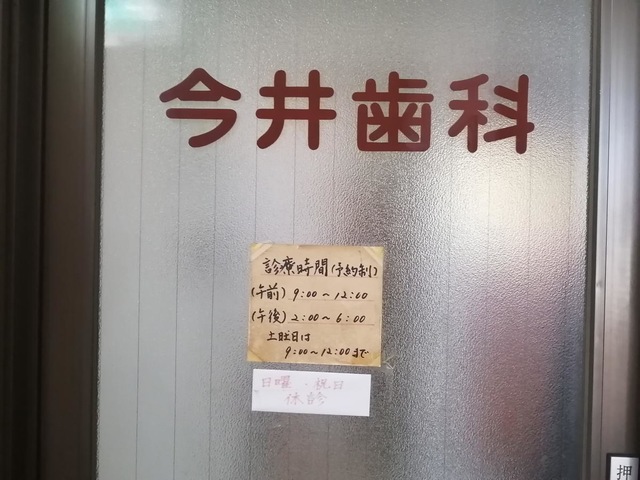 今井歯科
診療時間(予約制)
(午前) 9:00～12:00
(午後) 2:00～6:00
土曜日は
9:00～12:00まで
日曜・祝日
休診
押